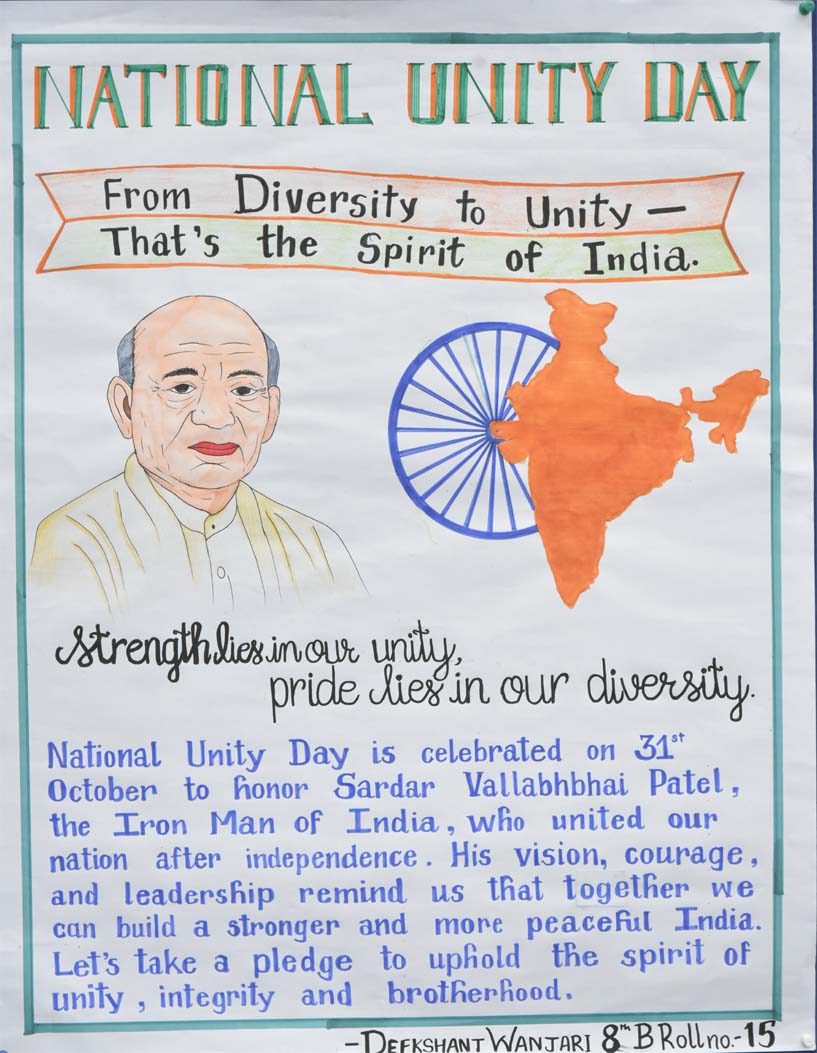 NATIONAL UNITY DAY
From Diversity to Unity —
That's the Spirit of India.
strength lies in our unity,
pride lies in our diversity.
National Unity Day is celebrated on 31st
October to honor Sardar Vallabhbhai Patel,
the Iron Man of India, who united our
nation after independence. His vision, courage,
and leadership remind us that together we
can build a stronger and more peaceful India.
Let's take a pledge to uphold the spirit of
unity, integrity and brotherhood.
-DEEKSHANT WANJARI 8th B Roll no.-15